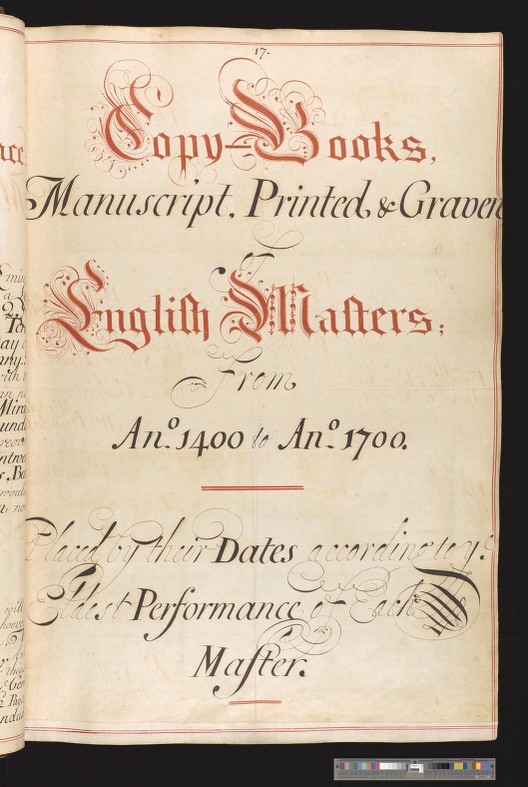 17.
Copy-Books,
Manuscript, Printed & Graven
of
Engliſh Maſters;
From
Anº. 1400 to Anº. 1700.
Placed by their Dates according to yᵉ
Eldest Performance of Each
Maſter.